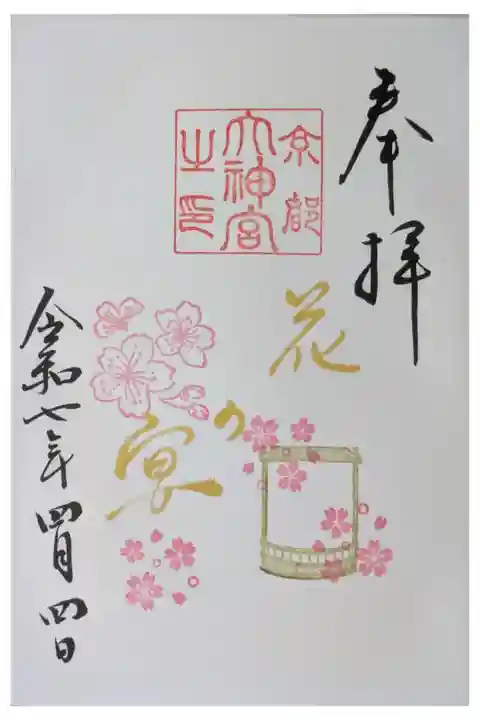 奉拝
京都
大神宮
之印
花
の
宴
令和七年四月四日